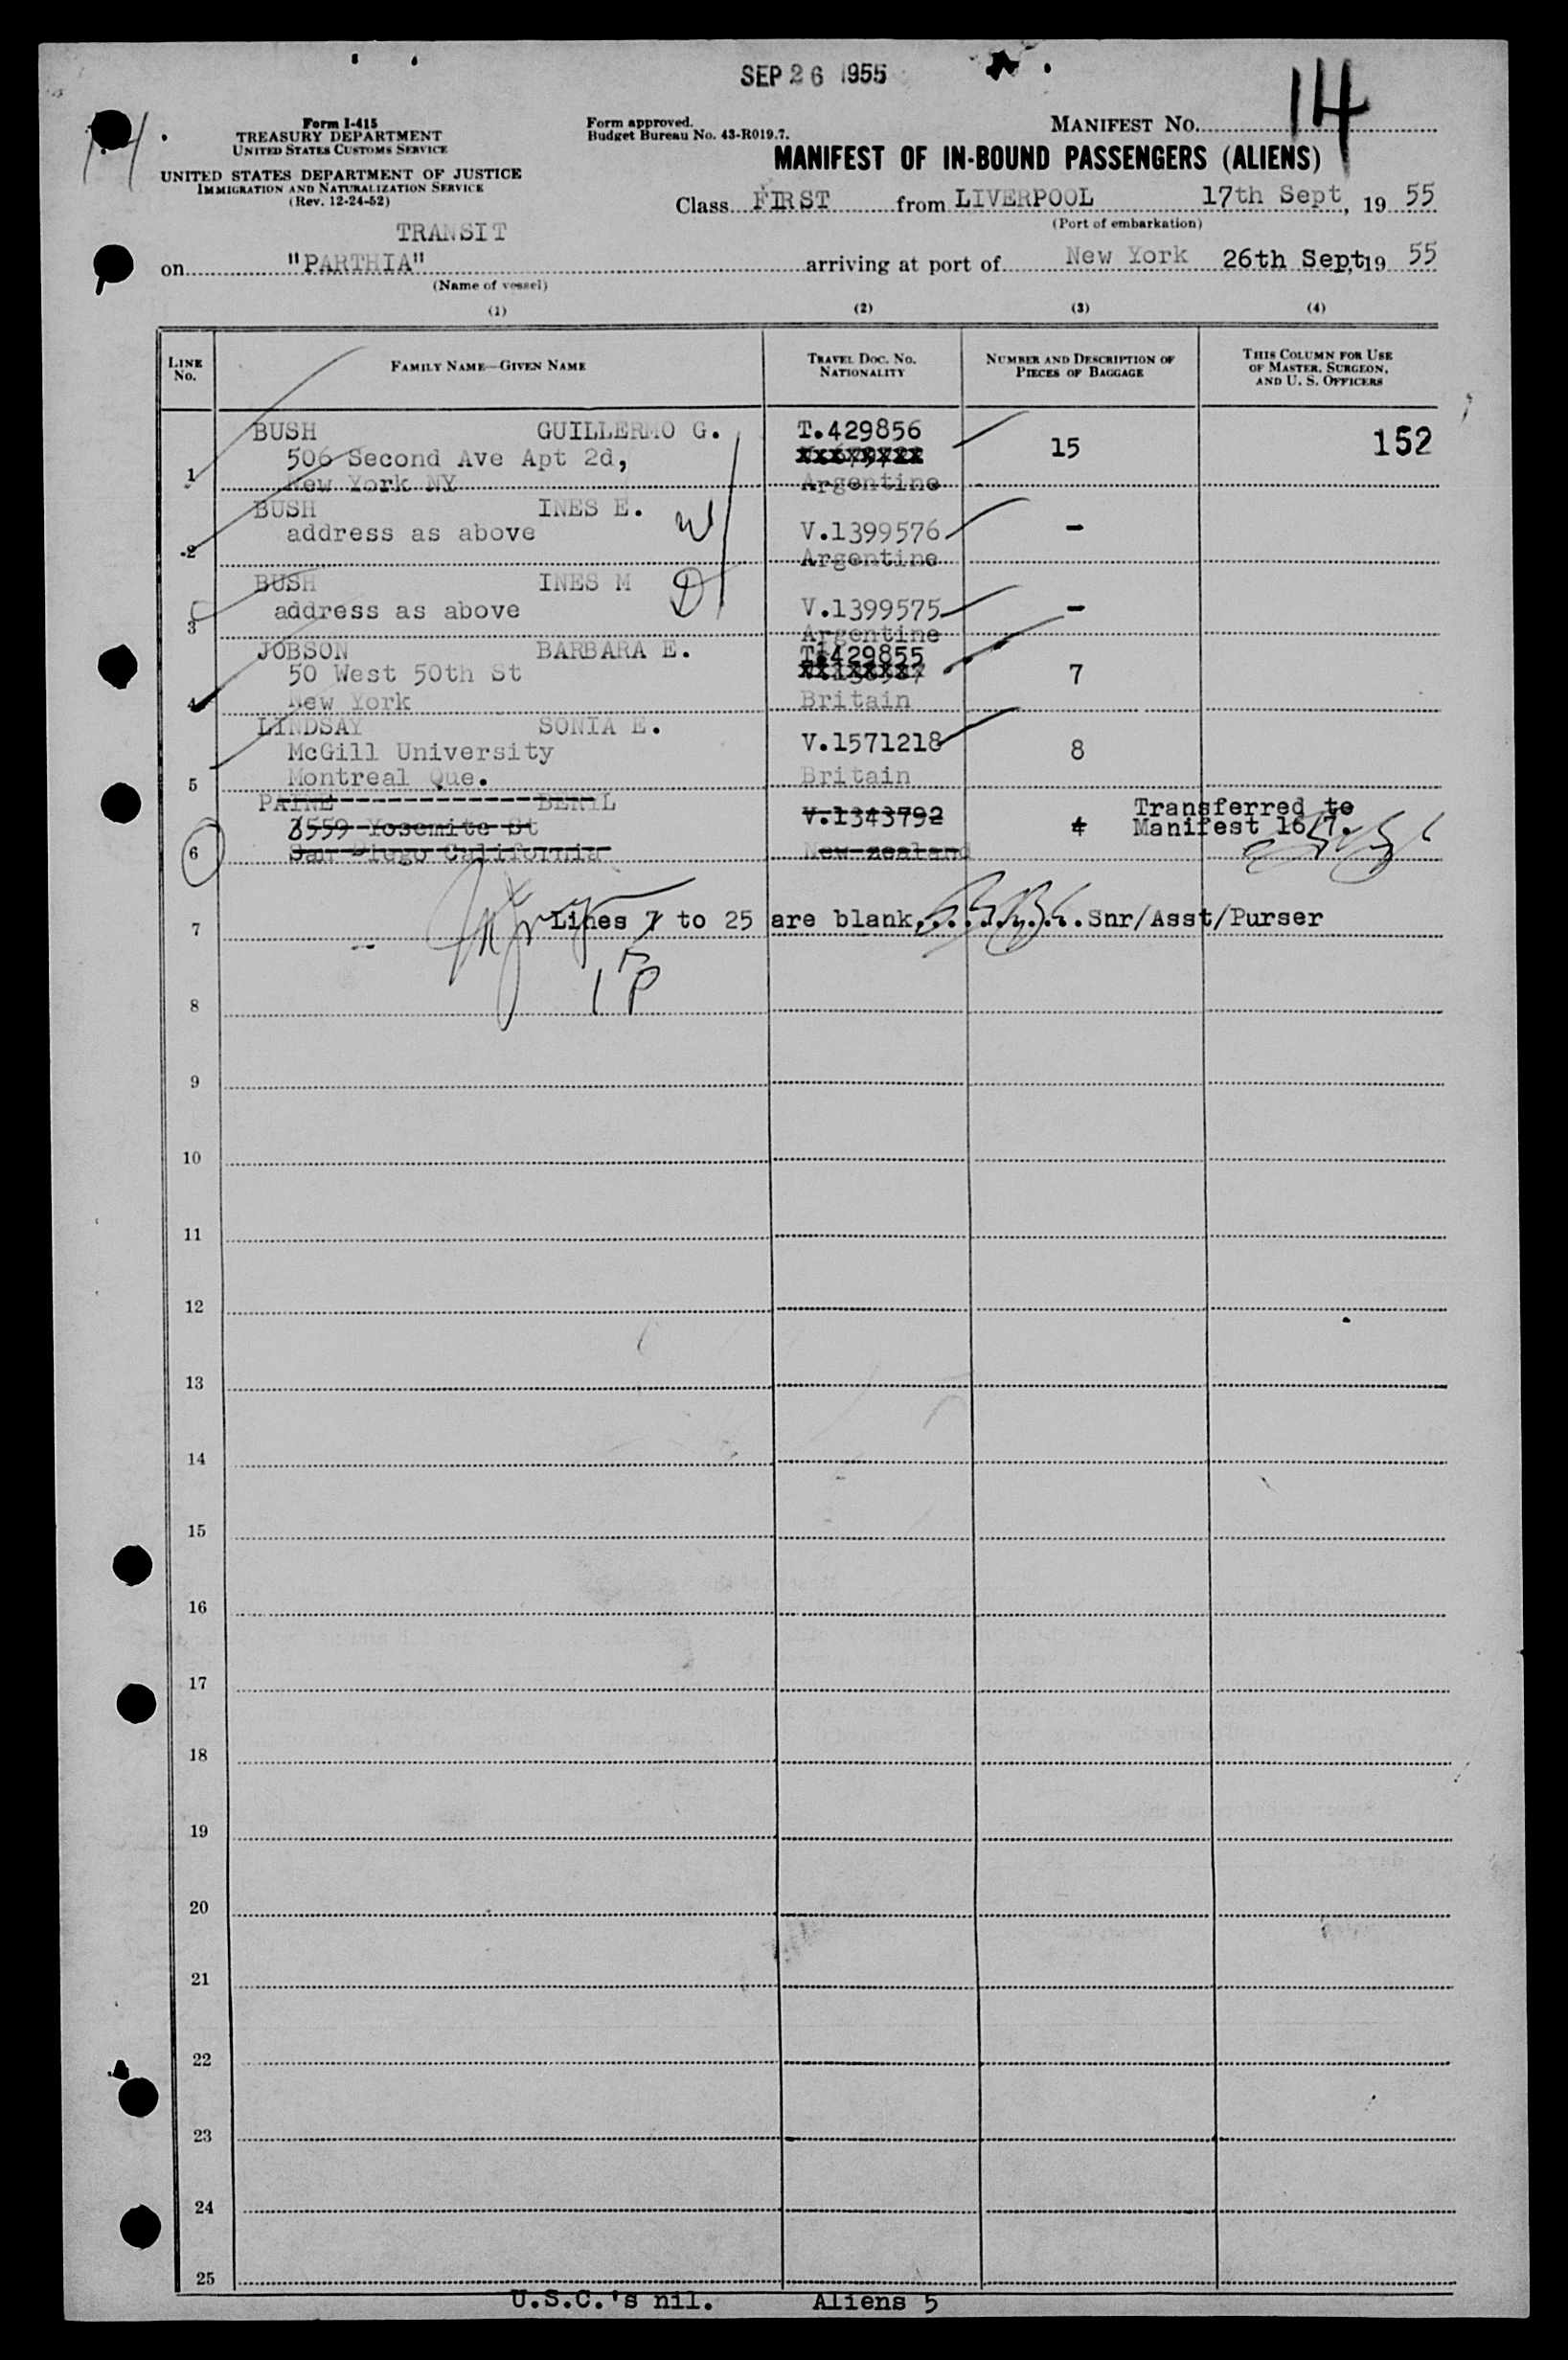 SEP 26 1955
14
Form I-415
TREASURY DEPARTMENT
UNITED STATES CUSTOMS SERVICE
UNITED STATES DEPARTMENT OF JUSTICE
IMMIGRATION AND NATURALIZATION SERVICE
(Rev. 12-24-52)
Form approved.
Budget Bureau No. 43-R019.7.
MANIFEST NO. 14
MANIFEST OF IN-BOUND PASSENGERS (ALIENS)
Class FIRST from LIVERPOOL 17th Sept, 19 55
(Port of embarkation)
TRANSIT
on "PARTHIA" arriving at port of New York 26th Sept, 19 55
(Name of vessel)
(1) (2) (3) (4)
LINE NO. FAMILY NAME—GIVEN NAME TRAVEL DOC. NO. NATIONALITY NUMBER AND DESCRIPTION OF PIECES OF BAGGAGE THIS COLUMN FOR USE OF MASTER, SURGEON, AND U. S. OFFICERS
BUSH GUILLERMO G. T.429856
506 Second Ave Apt 2d, 15 152
1 New York NY Argentine
BUSH INES E. W
address as above V.1399576 -
2 Argentine
BUSH INES M D
address as above V.1399575 -
3 Argentine
JOBSON BARBARA E. T.429855
50 West 50th St 7
4 New York Britain
LINDSAY SONIA E. V.1571218
McGill University 8
5 Montreal Que. Britain
PAINE BERYL V.1343792 Transferred to
3559 Yosemite St 4 Manifest 16/7.
6 San Diego California New zealand
7 Lines 7 to 25 are blank, Snr/Asst/Purser
8
9
10
11
12
13
14
15
16
17
18
19
20
21
22
23
24
25
U.S.C.'s nil. Aliens 5